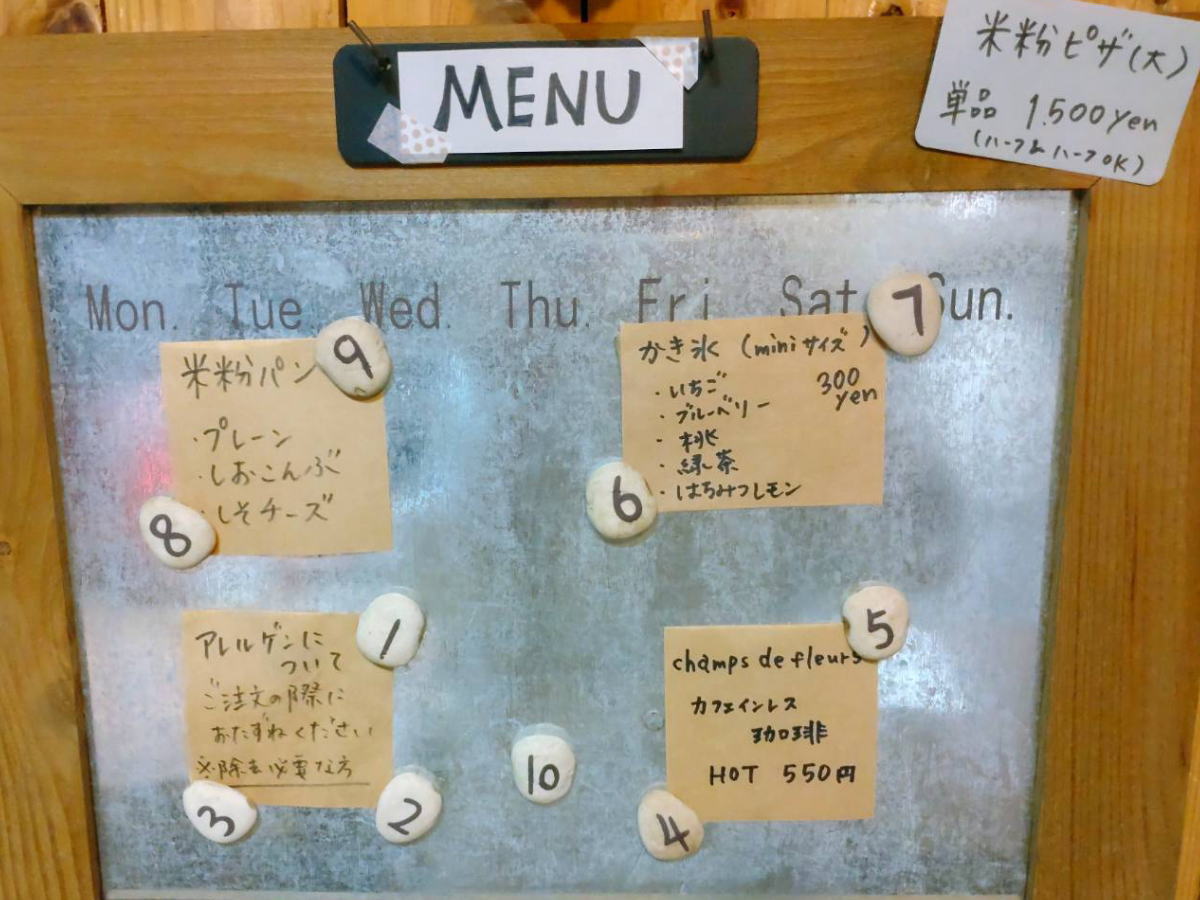 MENU
米粉ピザ(大)
単品 1.500yen
(ハーフ&ハーフOK)
Mon. Tue Wed. Thu. Fri Sat Sun.
9
米粉パン
・プレーン
・しおこんぶ
・しそチーズ
8
7
かき氷 (miniサイズ)
300
yen
・いちご
・ブルーベリー
・桃
・緑茶
・はちみつレモン
6
1
アレルゲンに
ついて
ご注文の際に
おたずねください
※除去必要な方
3
2
10
5
champs de fleurs
カフェインレス
珈琲
HOT 550円
4